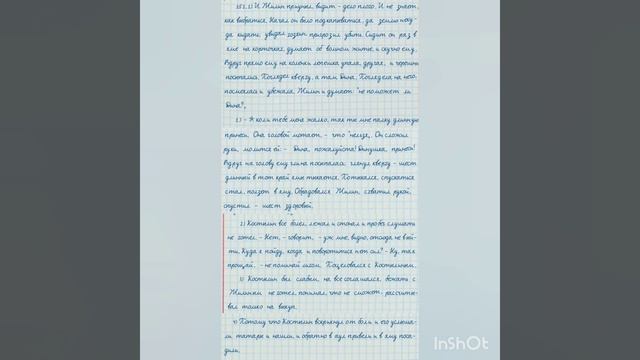 151. 1) И Жилин приуныл, видит - дело плохо. И не знает,
как выбраться. Начал он было подкапываться, да землю неку-
да кидать, увидал хозяин, пригрозил убить. Сидит он раз в
яме на корточках, думает об вольном житье, и скучно ему.
Вдруг прямо ему на колени лепёшка упала, другая, и черешни
посыпались. Поглядел кверху, а там Дина. Поглядела на него,
посмеялась и убежала. Жилин и думает: "не поможет ли
Дина?"
2) - А коли тебе меня жалко, так ты мне палку длинную
принеси. Она головой мотает - что "нельзя". Он сложил
руки, молится ей: - Дина, пожалуйста! Динушка, принеси!
Вдруг на голову ему глина посыпалась; глянул кверху - шест
длинный в тот край ямы тыкается. Потыкался, спускаться
стал, ползёт в яму. Обрадовался Жилин, схватил рукой,
спустил - шест здоровый.
2) Костылин всё болел, лежал и стонал и про бег слушать
не хотел. - Нет, - говорит, - уж мне, видно, отсюда не вый-
ти. Куда я пойду, когда и поворотиться нет сил? - Ну, так
прощай, - не поминай лихом. Поцеловался с Костылиным.
3) Костылин был слабый, на всё соглашался, бежать с
Жилиным не хотел, понимал, что не сможет, рассчиты-
вал только на выкуп.
4) Потому что Костылин вскрикнул от боли и его услыша-
ли татары и нашли, и обратно в аул привели и в яму поса-
дили.
InShOt